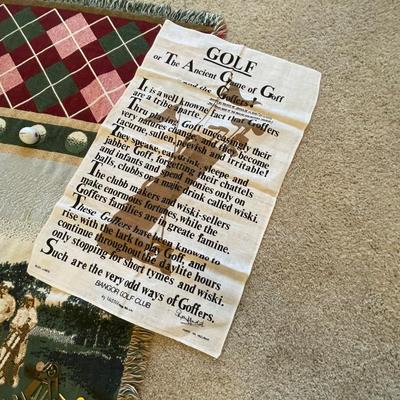 GOLF
or The Ancient Game of Goff
and the Goffers
It is a well knowne fact that Goffers
are a tribe aparte.
Thro playing Goff unceasingly their
very natures change, and they become
taciturne, sullen, peevish and irritable!
They speake, eat, drink, sleepe and
jabber Goff, forgetting their chattels
and infants and spend monies only on
balls, clubbs or a magic drink called wiski.
The clubb makers and wiski-sellers
make enormous fortunes, while the
Goffers families are in greate famine.
These Goffers have been knowne to
rise with the lark to play Goff, and
continue throughout the daylite hours
only stopping for short tymes and wiski.
Such are the very odd ways of Goffers.
BANGOR GOLF CLUB